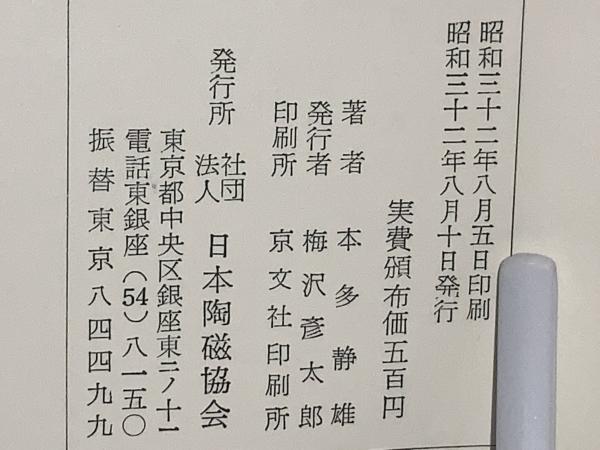 昭和三十二年八月五日印刷
昭和三十二年八月十日発行
実費頒布価五百円
著者 本多静雄
発行者 梅沢彦太郎
印刷所 京文社印刷所
発行所 社団法人 日本陶磁協会
東京都中央区銀座東二ノ十一
電話東銀座(54)八一五〇
振替東京八四四九九